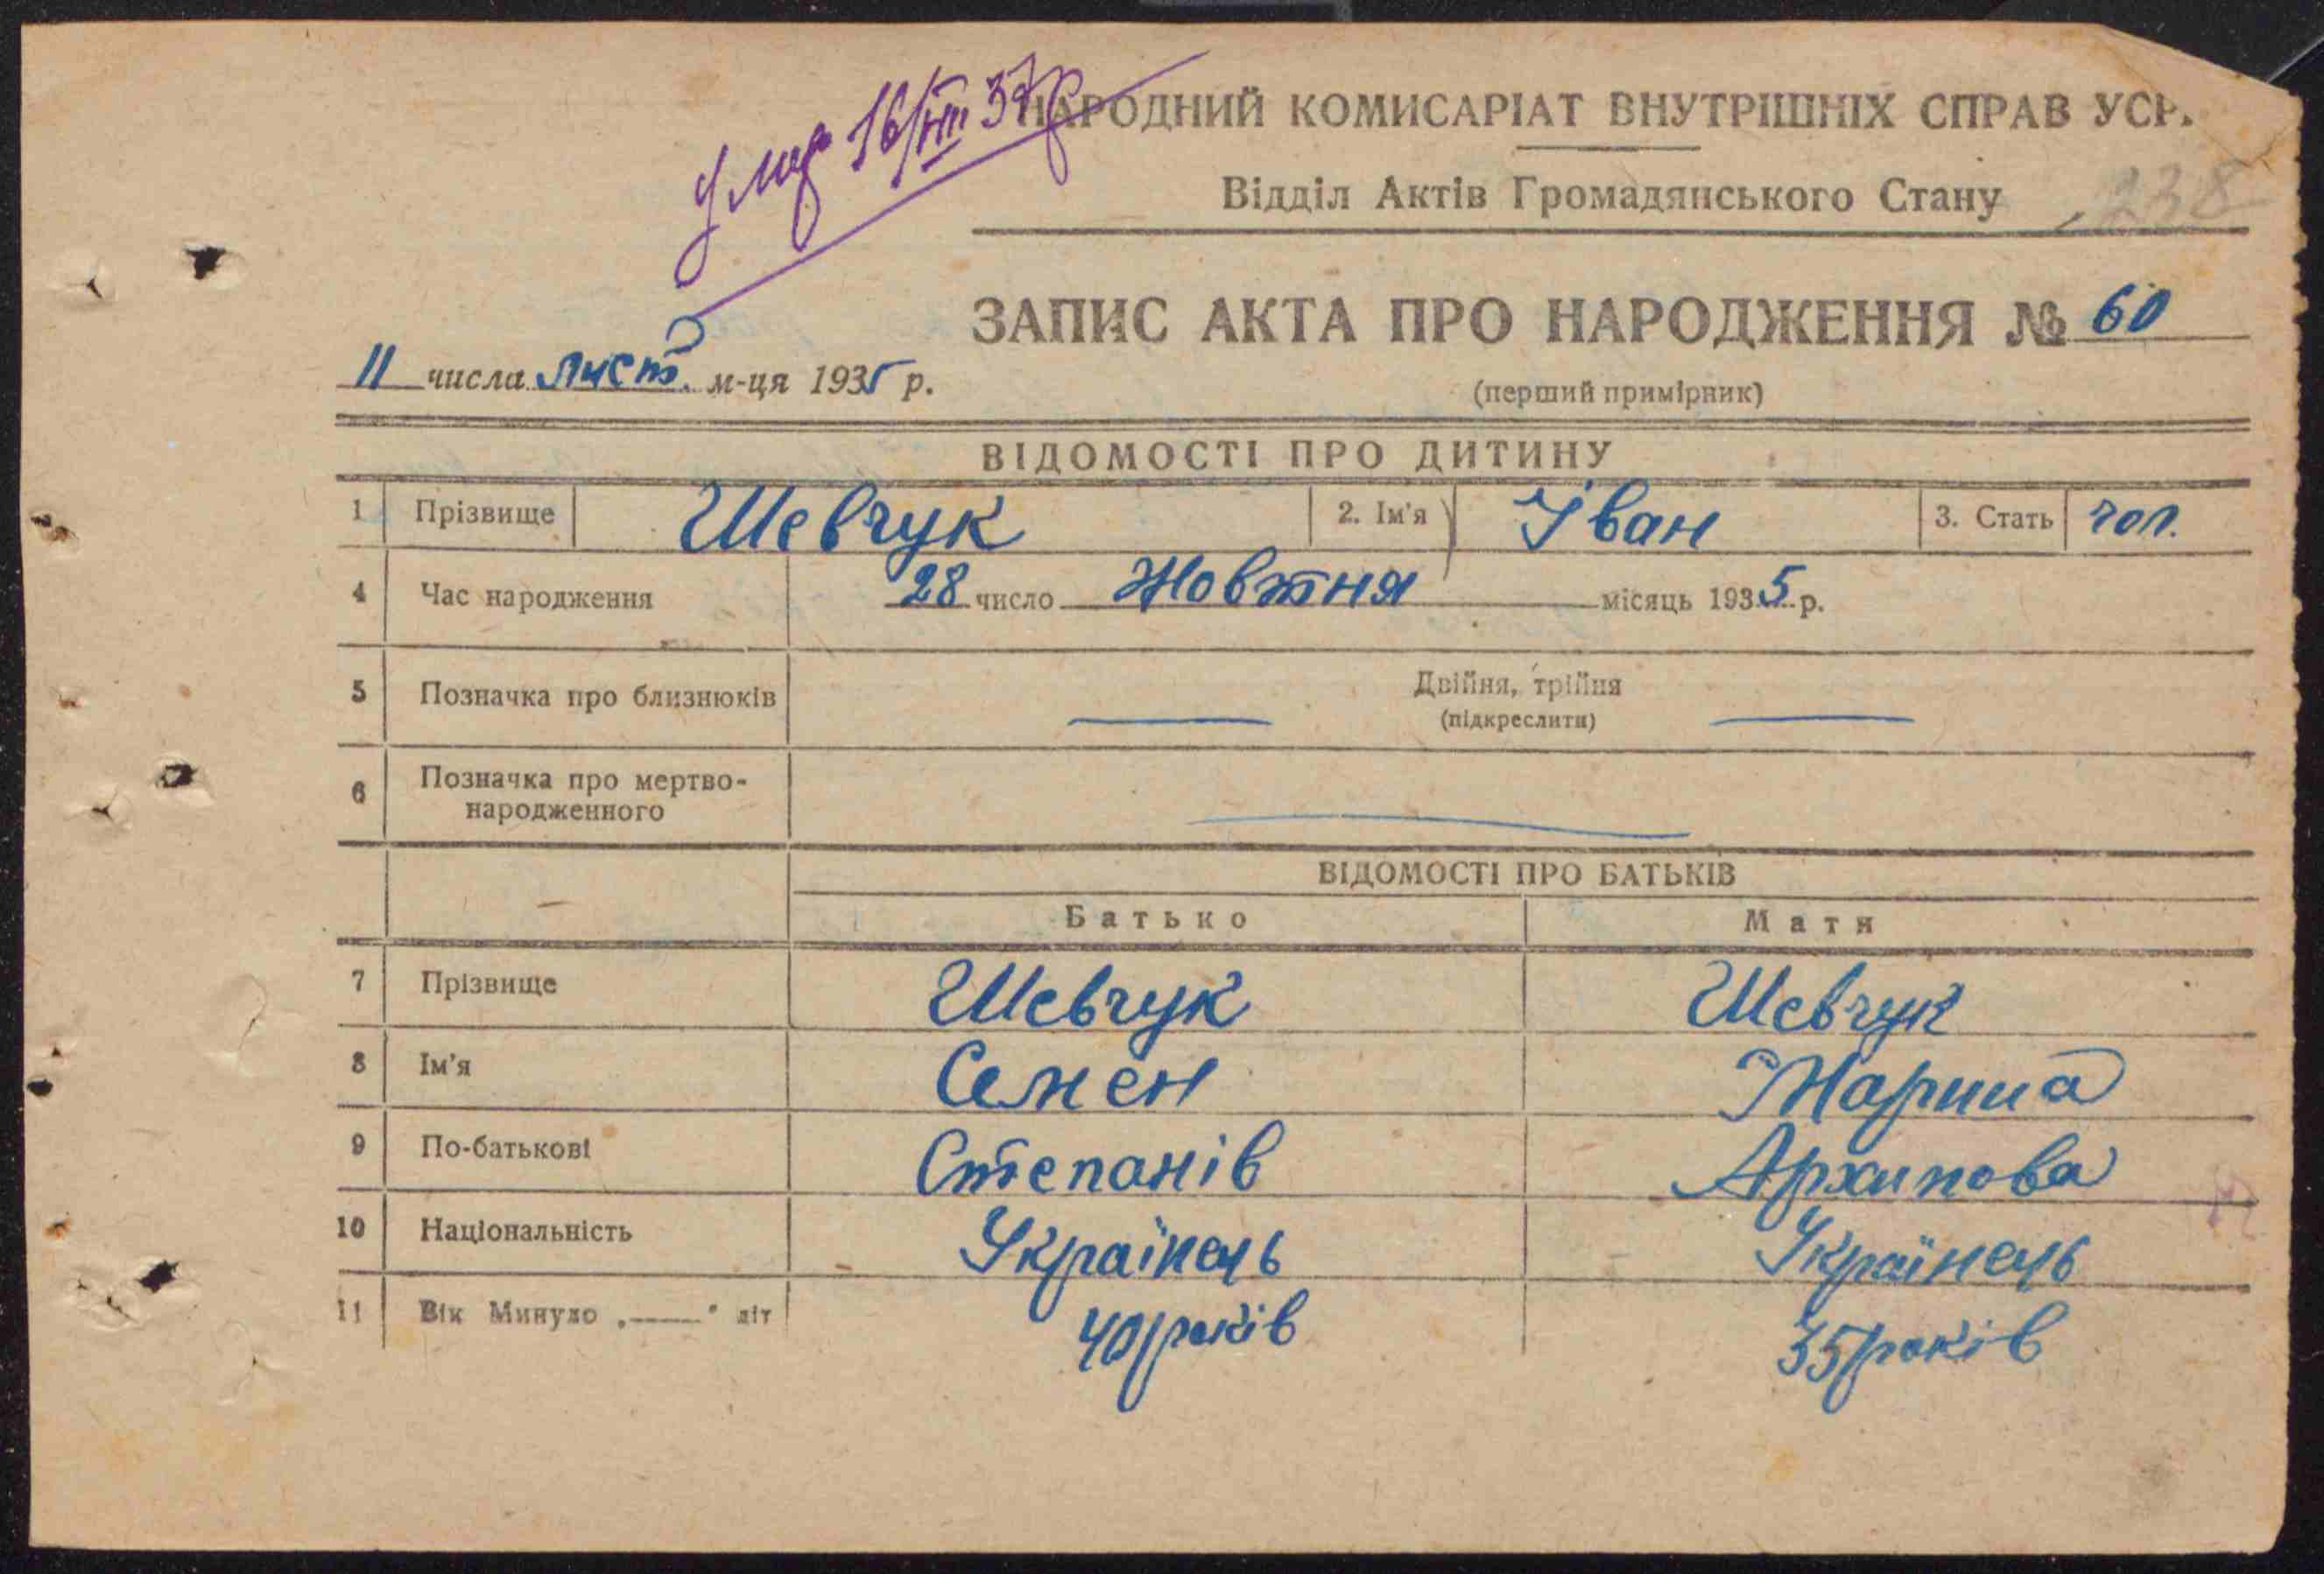 умер 16/VIII 37р
НАРОДНИЙ КОМИСАРІАТ ВНУТРІШНІХ СПРАВ УСР.
Відділ Актів Громадянського Стану
238
ЗАПИС АКТА ПРО НАРОДЖЕННЯ № 60
11 числа лист. м-ця 1935 р.
(перший примірник)
ВІДОМОСТІ ПРО ДИТИНУ
1 Прізвище Шевчук 2. Ім'я Іван 3. Стать чол.
4 Час народження 28 число Жовтня місяць 1935 р.
5 Позначка про близнюків Двійня, трійня
(підкреслити)
6 Позначка про мертво-
народженного
ВІДОМОСТІ ПРО БАТЬКІВ
Батько Мати
7 Прізвище Шевчук Шевчук
8 Ім'я Семен Марина
9 По-батькові Степанів Архипова
10 Національність Українець Українець
11 Вік Минуло „——" літ 40 років 35 років